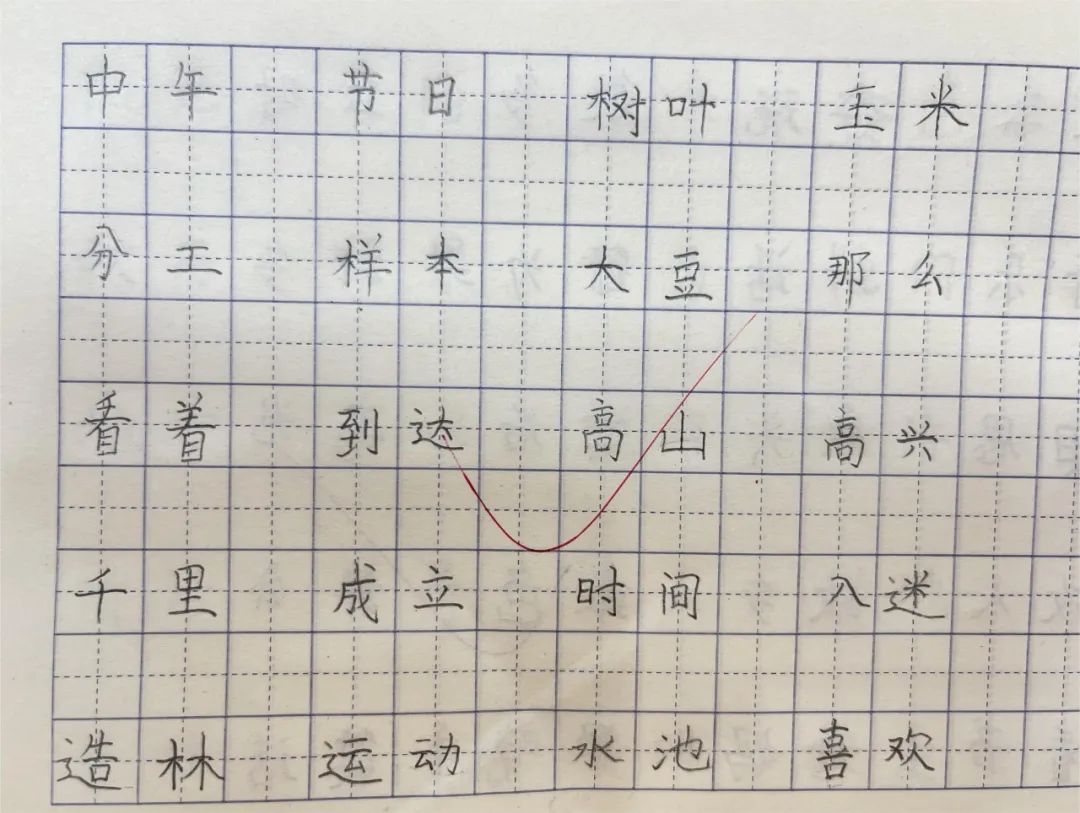 中午 节日 树叶 玉米
分工 样本 大豆 那么
看着 到达 高山 高兴
千里 成立 时间 入迷
造林 运动 水池 喜欢